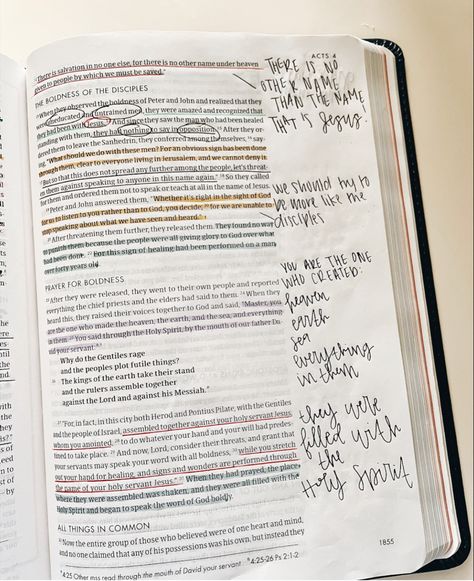 ACTS 4
There is salvation in no one else, for there is no other name under heaven
given to people by which we must be saved."
THE BOLDNESS OF THE DISCIPLES
When they observed the boldness of Peter and John and realized that they
were uneducated and untrained men, they were amazed and recognized that
they had been with Jesus. And since they saw the man who had been healed
standing with them, they had nothing to say in opposition. 15 After they or-
dered them to leave the Sanhedrin, they conferred among themselves, say-
ing, "What should we do with these men? For an obvious sign has been done
through them, clear to everyone living in Jerusalem, and we cannot deny it.
But so that this does not spread any further among the people, let's threat-
en them against speaking to anyone in this name again." So they called
for them and ordered them not to speak or teach at all in the name of Jesus.
Peter and John answered them, "Whether it's right in the sight of God
for us to listen to you rather than to God, you decide; 20 for we are unable to
stop speaking about what we have seen and heard."
After threatening them further, they released them. They found no way
to punish them because the people were all giving glory to God over what
had been done. 22 For this sign of healing had been performed on a man
over forty years old.
PRAYER FOR BOLDNESS
After they were released, they went to their own people and reported
everything the chief priests and the elders had said to them. 24 When they
heard this, they raised their voices together to God and said, "Master, you
are the one who made the heaven, the earth, and the sea, and everything
in them. You said through the Holy Spirit, by the mouth of our father Da-
vid your servant:
Why do the Gentiles rage
and the peoples plot futile things?
26 The kings of the earth take their stand
and the rulers assemble together
against the Lord and against his Messiah."
27 "For, in fact, in this city both Herod and Pontius Pilate, with the Gentiles
and the people of Israel, assembled together against your holy servant Jesus,
whom you anointed, 28 to do whatever your hand and your will had predes-
tined to take place. 29 And now, Lord, consider their threats, and grant that
your servants may speak your word with all boldness, 30 while you stretch
out your hand for healing, and signs and wonders are performed through
the name of your holy servant Jesus." 31 When they had prayed, the place
where they were assembled was shaken, and they were all filled with the
Holy Spirit and began to speak the word of God boldly.
ALL THINGS IN COMMON
32 Now the entire group of those who believed were of one heart and mind,
and no one claimed that any of his possessions was his own, but instead they
4:25 Other mss read through the mouth of David your servant 4:25-26 Ps 2:1-2
1855
THERE IS NO
OTHER NAME
THAN THE NAME
THAT IS Jesus!
we should try to
be more like me
disciples
YOU ARE THE ONE
WHO CREATED:
heaven
earth
sea
everything
in them
they were
filled with
the
HOLY SPIRIT